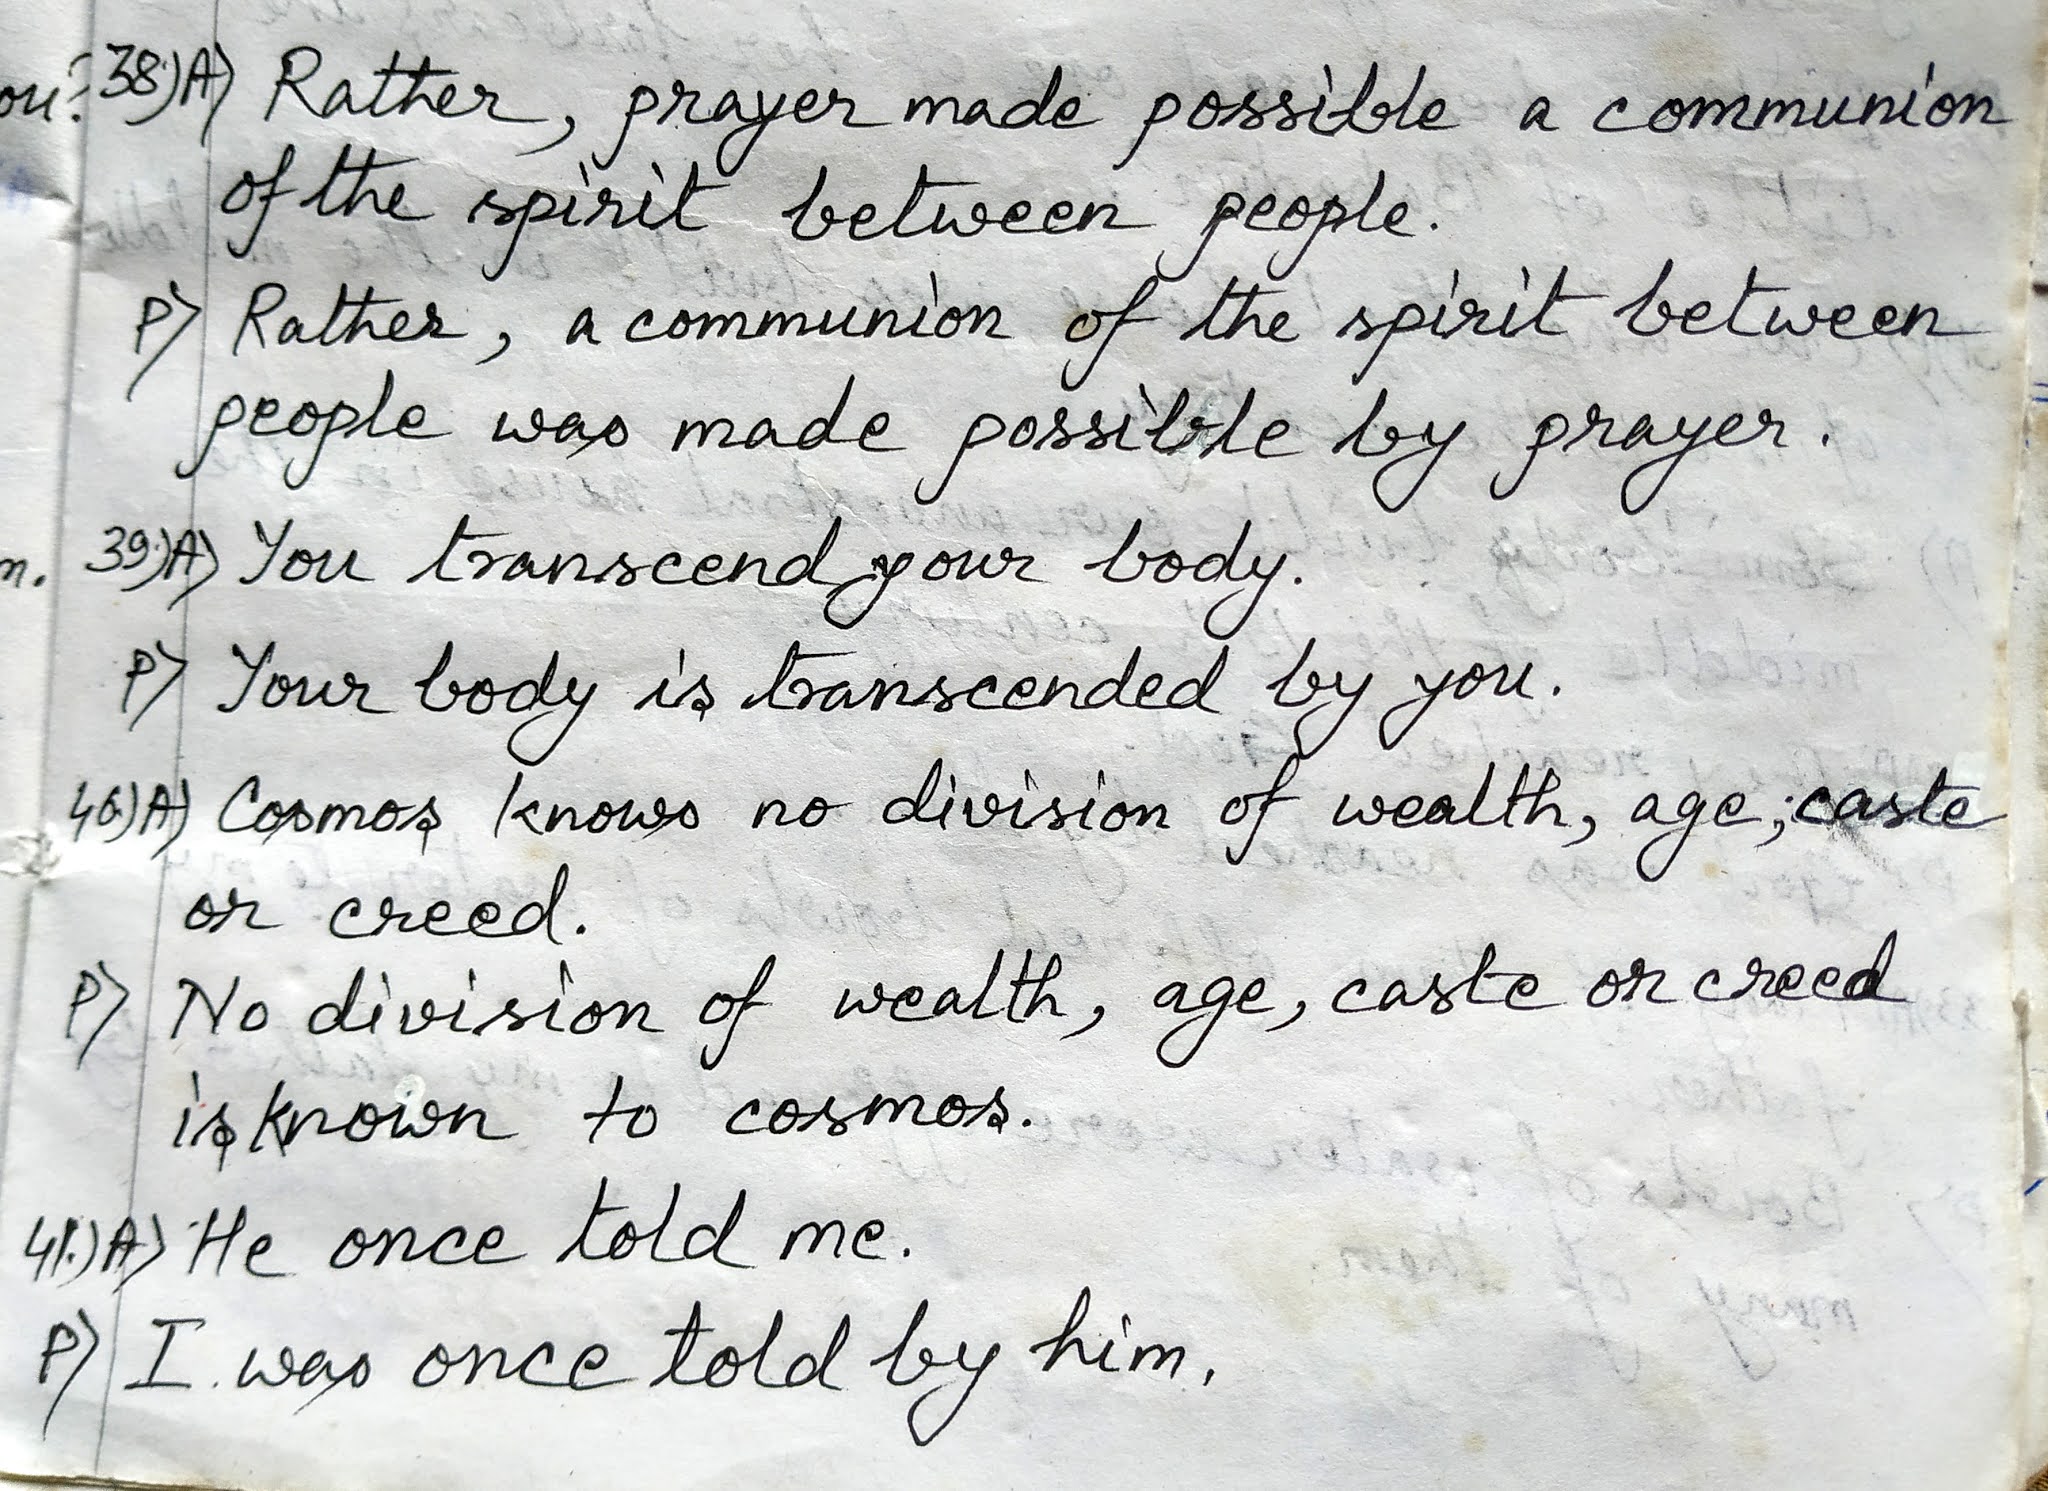 ou? 38.)A) Rather, prayer made possible a communion
of the spirit between people.
P) Rather, a communion of the spirit between
people was made possible by prayer.
n. 39.)A) You transcend your body.
P) Your body is transcended by you.
40.)A) Cosmos knows no division of wealth, age, caste
or creed.
P) No division of wealth, age, caste or creed
is known to cosmos.
41.)A) He once told me.
P) I was once told by him.